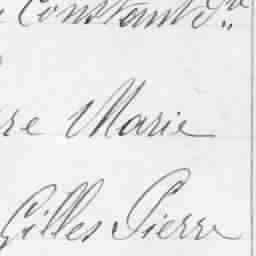 Constant Jr.
re Marie
Gilles Pierre